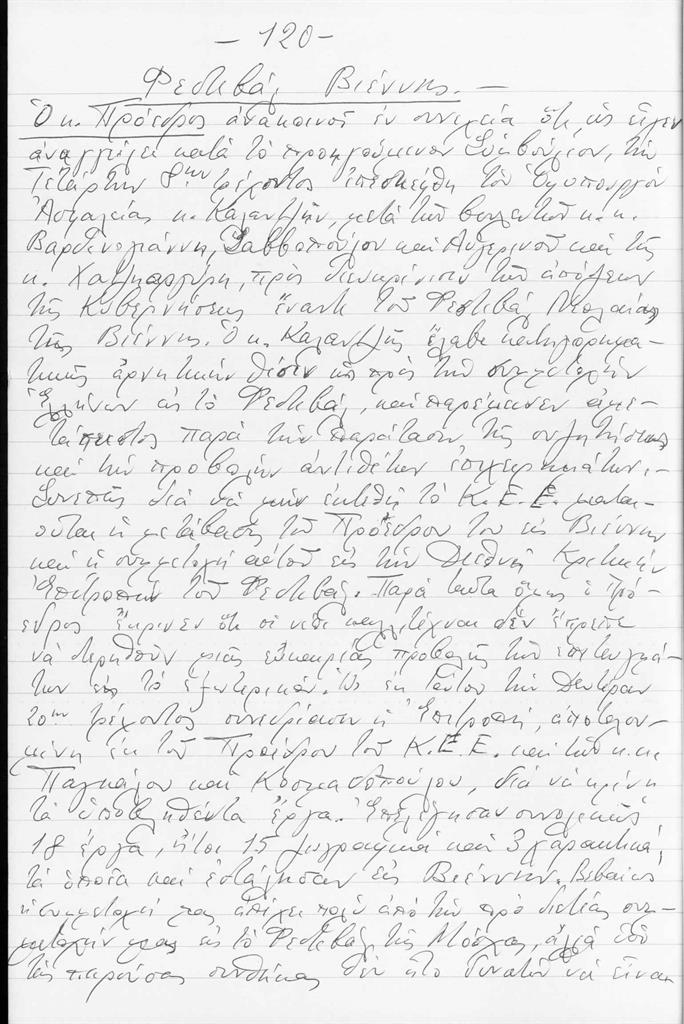 – 120 –
Φεστιβάλ Βιέννης. –
Ὁ κ. Πρόεδρος ἀνακοινοῖ ἐν συνεχείᾳ ὅτι, ὡς εἶχεν
ἀναγγείλει κατὰ τὸ προηγούμενον Συμβούλιον, τὴν
Τετάρτην 8ην τρέχοντος ἐπεσκέφθη τὸν Ὑφυπουργὸν
Ἀσφαλείας κ. Καλαντζῆν, μετὰ τῶν βουλευτῶν κ.κ.
Βαρδινογιάννη, Σαββοπούλου καὶ Αὐγερινοῦ καὶ τῆς
κ. Χατζηαργύρη, πρὸς διευκρίνισιν τῶν ἀπόψεων
τῆς Κυβερνήσεως ἔναντι τοῦ Φεστιβάλ Νεολαίας
τῆς Βιέννης. Ὁ κ. Καλαντζῆς ἔλαβε κατηγορημα-
τικῶς ἀρνητικὴν θέσιν ὡς πρὸς τὴν συμμετοχὴν
Ἑλλήνων εἰς τὸ Φεστιβάλ, καὶ παρέμεινεν ἀμε-
τάπειστος παρὰ τὴν παράτασιν τῆς συζητήσεως
καὶ τὴν προβολὴν ἀντιθέτων ἐπιχειρημάτων. –
Συνεπῶς διὰ νὰ μὴν ἐκτεθῇ τὸ Κ.Ε.Ε. μαται-
οῦται ἡ μετάβασις τοῦ Προέδρου του εἰς Βιέννην
καὶ ἡ συμμετοχὴ αὐτοῦ εἰς τὴν Διεθνῆ Κριτικὴν
Ἐπιτροπὴν τοῦ Φεστιβάλ. Παρὰ ταῦτα ὅμως ὁ Πρό-
εδρος ἔκρινεν ὅτι οἱ νέοι καλλιτέχναι δὲν ἔπρεπε
νὰ στερηθοῦν μιᾶς εὐκαιρίας προβολῆς τῶν ἐπιτευγμά-
των εἰς τὸ ἐξωτερικόν. Ὡς ἐκ τούτου τὴν Δευτέραν
20ην τρέχοντος συνεδρίασεν ἡ Ἐπιτροπή, ἀποτελου-
μένη ἐκ τοῦ Προέδρου τοῦ Κ.Ε.Ε. καὶ τῶν κ.κ.
Παγκάλου καὶ Κοσμαδοπούλου, διὰ νὰ κρίνῃ
τὰ ὑποβληθέντα ἔργα. Ἐπελέγησαν συνολικῶς
18 ἔργα, ἤτοι 15 ζωγραφικά καὶ 3 χαρακτικά,
τὰ ὁποῖα καὶ ἐστάλησαν εἰς Βιέννην. Βεβαίως
ἡ συμμετοχή μας ἀπέχει πολὺ ἀπὸ τὴν πρὸ διετίας συμ-
μετοχήν μας εἰς τὸ Φεστιβάλ τῆς Μόσχας, ἀλλὰ ὑπὸ
τὰς παρούσας συνθήκας δὲν ἦτο δυνατὸν νὰ εἶναι